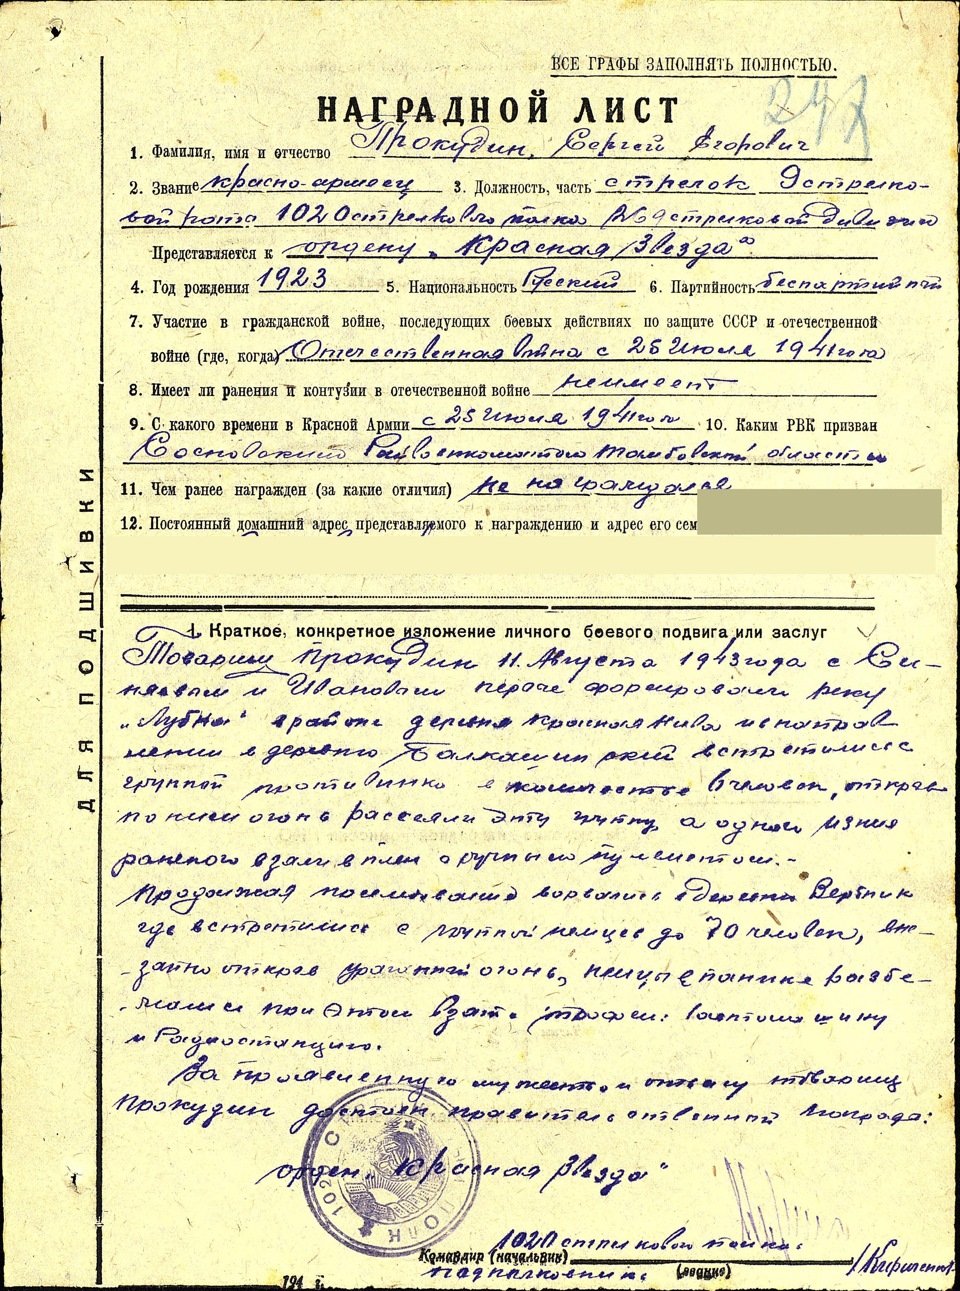 ВСЕ ГРАФЫ ЗАПОЛНЯТЬ ПОЛНОСТЬЮ.
247
НАГРАДНОЙ ЛИСТ
1. Фамилия, имя и отчество Прокудин, Сергей Егорович
2. Звание красно-армеец 3. Должность, часть стрелок 9 стрелко-
вой роты 1020 стрелкового полка стрелковой дивизии
Представляется к ордену „Красная Звезда"
4. Год рождения 1923 5. Национальность Русский 6. Партийность беспартийный
7. Участие в гражданской войне, последующих боевых действиях по защите СССР и отечественной
войне (где, когда) Отечественная война с 25 июля 1941 года
8. Имеет ли ранения и контузии в отечественной войне неимеет
9. С какого времени в Красной Армии с 25 июля 1941 года 10. Каким РВК призван
Сосновским Райвоенкоматом Тамбовской области
11. Чем ранее награжден (за какие отличия) не награждался
12. Постоянный домашний адрес представляемого к награждению и адрес его сем
ДЛЯ ПОДШИВКИ
I. Краткое, конкретное изложение личного боевого подвига или заслуг
Товарищ Прокудин 11 Августа 1943 года с Си-
нявым и Ивановым первые форсировали реку
в районе деревни Красная Нива и направ
лении в деревню встретились с
группой противника в количестве 6 человек, открыв
по ним огонь рассеяли эту группу, а одного из них
раненого взяли в плен с ручным пулеметом.-
Продолжая преследование ворвались в деревню Вертник
где встретились с группой немцев до 70 человек, вне-
запно открыв ураганный огонь, немцы в панике разбе-
жались при этом взяты трофеи: автомашину
и Радиостанцию.
За проявленную мужество и отвагу товарищ
Прокудин достоин правительственной награды:
орден „Красная Звезда"
1020 СТР ПОЛК
1020 стрелкового полка
Командир (начальник)
подполковник (звание)
194 г.